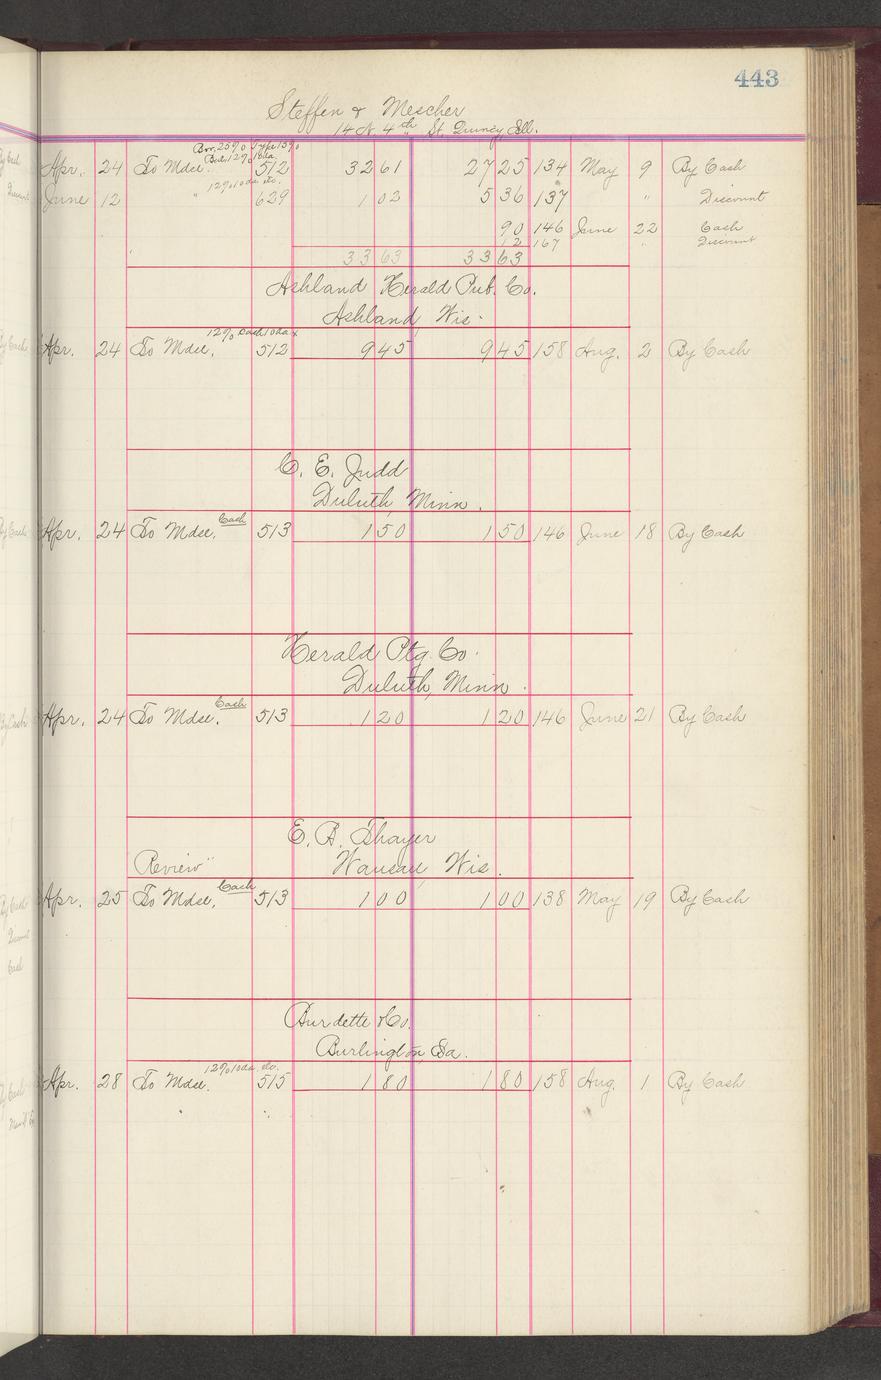 443
Steffen & Mescher
14 N. 4th St. Quincy Ill.
Bor. 25% Type 15%
But. 12% 10 da.
Apr. 24 To Mdse. 512 32 61 27 25 134 May 9 By Cash
12% 10 da. etc.
June 12 " 629 1 02 5 36 137 " Discount
90 146 June 22 Cash
12 167 " Discount
33 63 33 63
Ashland Herald Pub. Co.
Ashland, Wis.
12% Cash 10 da
Apr. 24 To Mdse. 512 9 45 9 45 158 Aug. 2 By Cash
C. E. Judd
Duluth, Minn.
Cash
Apr. 24 To Mdse. 513 1 50 1 50 146 June 18 By Cash
Herald Ptg. Co.
Duluth, Minn.
Cash
Apr. 24 To Mdse. 513 1 20 1 20 146 June 21 By Cash
E. B. Thayer
"Review" Wausau, Wis.
Cash
Apr. 25 To Mdse. 513 1 00 1 00 138 May 19 By Cash
Burdette & Co.
Burlington, Ia.
12% 10 da. etc.
Apr. 28 To Mdse. 515 1 80 1 80 158 Aug. 1 By Cash